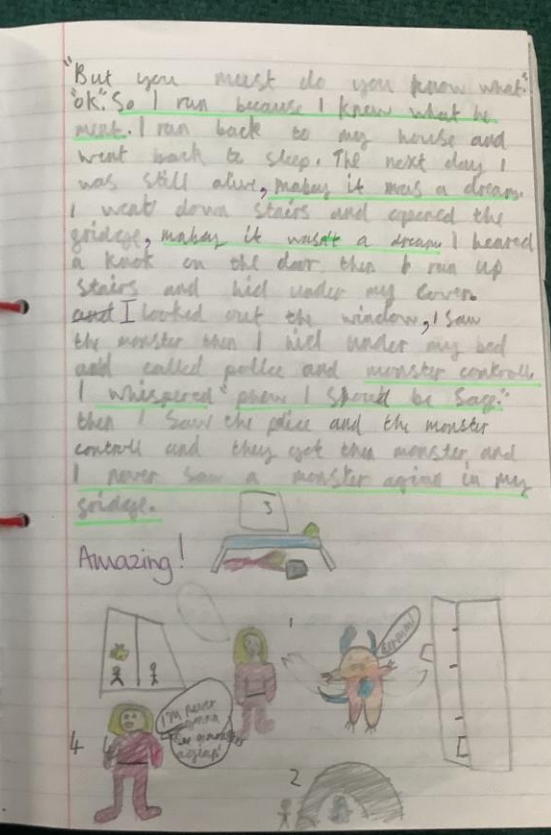 "But you must do you know what"
"ok". So I run because I knew what he
ment. I ran back to my house and
went back to sleep. The next day I
was still alive, mabey it was a dream.
I went down stairs and opened the
gridege, mabey it wasn't a dream I heared
a knok on the door then I run up
stairs and hid under my cover.
and I looked out the window, I saw
the monster then I hid under my bed
and called police and monster controll.
I whispered "phew I should be Sage."
then I saw the police and the monster
controll and they get the monster and
I never saw a monster agian in my
gridege.
Amazing!
3
1
4
I'm never
gonna
See
2